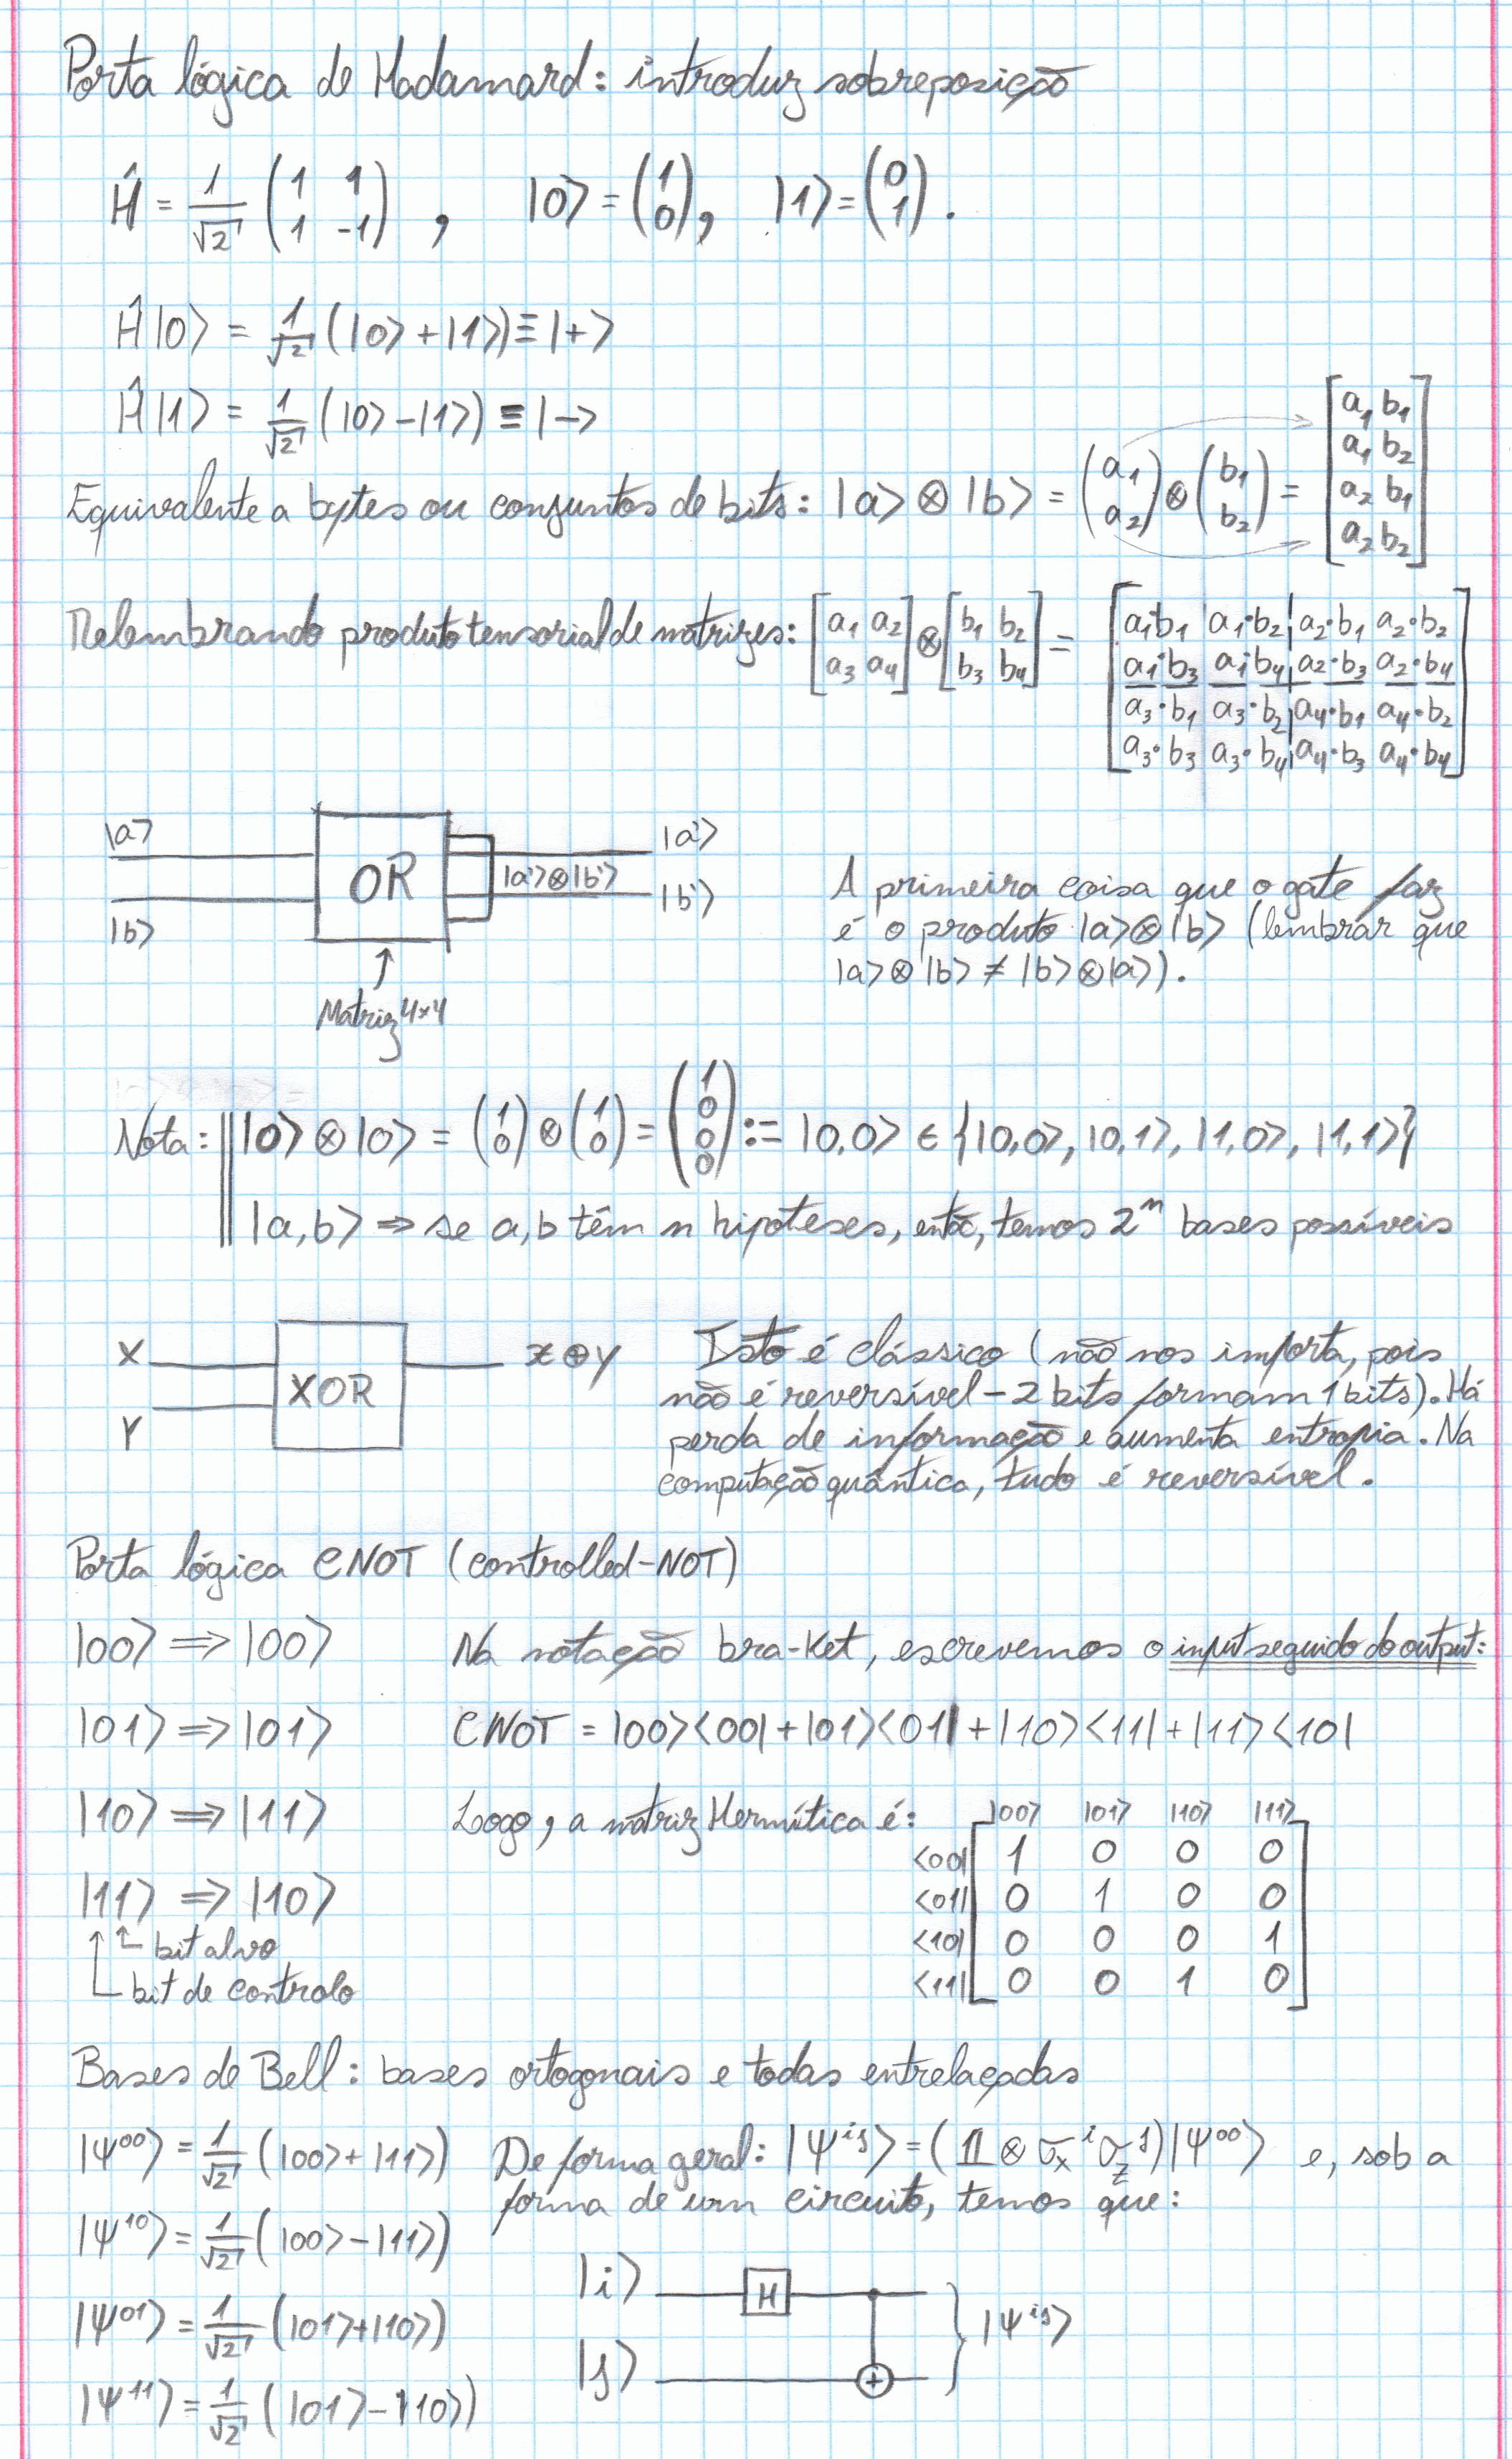 Porta lógica de Hadamard: introduz sobreposição
Ĥ = 1/√2 (1 1 1 -1), |0> = (1 0), |1> = (0 1).
Ĥ|0> = 1/√2 (|0> + |1>) ≡ |+>
Ĥ|1> = 1/√2 (|0> - |1>) ≡ |->
Equivalente a bytes ou conjuntos de bits: |a> ⊗ |b> = (a1 a2) ⊗ (b1 b2) = [a1 b1 a1 b2 a2 b1 a2 b2]
Relembrando produto tensorial de matrizes: [a1 a2 a3 a4] ⊗ [b1 b2 b3 b4] =
a1·b1 a1·b2 a2·b1 a2·b2
a1·b3 a1·b4 a2·b3 a2·b4
a3·b1 a3·b2 a4·b1 a4·b2
a3·b3 a3·b4 a4·b3 a4·b4
|a>
|b>
OR
|a'>⊗|b'>
|a'>
|b'>
Matriz 4×4
A primeira coisa que o gate faz
é o produto |a>⊗|b> (lembrar que
|a>⊗|b> ≠ |b>⊗|a>).
Nota: |0> ⊗ |0> = (1 0) ⊗ (1 0) = (1 0 0 0) := |0,0> ∈ {|0,0>, |0,1>, |1,0>, |1,1>}
|a,b> ⇒ se a,b têm n hipoteses, então, temos 2^n bases possíveis
X
Y
XOR
x⊕y
Isto é clássico (não nos importa, pois
não é reversível - 2 bits formam 1 bits). Há
perda de informação e aumenta entropia. Na
computação quântica, tudo é reversível.
Porta lógica CNOT (controlled-NOT)
|00> ⇒ |00>
Na notação bra-ket, escrevemos o input seguido do output:
|01> ⇒ |01>
CNOT = |00><00| + |01><01| + |10><11| + |11><10|
|10> ⇒ |11>
Logo, a matriz Hermítica é:
|00> |01> |10> |11>
<00| 1 0 0 0
<01| 0 1 0 0
<10| 0 0 0 1
<11| 0 0 1 0
|11> ⇒ |10>
bit alvo
bit de controlo
Bases de Bell: bases ortogonais e todas entrelaçadas
|Ψ^00> = 1/√2 (|00> + |11>)
De forma geral: |Ψ^ij> = (𝟙 ⊗ σx^i σz^j)|Ψ^00> e, sob a
forma de um circuito, temos que:
|Ψ^10> = 1/√2 (|00> - |11>)
|Ψ^01> = 1/√2 (|01> + |10>)
|Ψ^11> = 1/√2 (|01> - |10>)
|i>
H
|j>
|Ψ^ij>